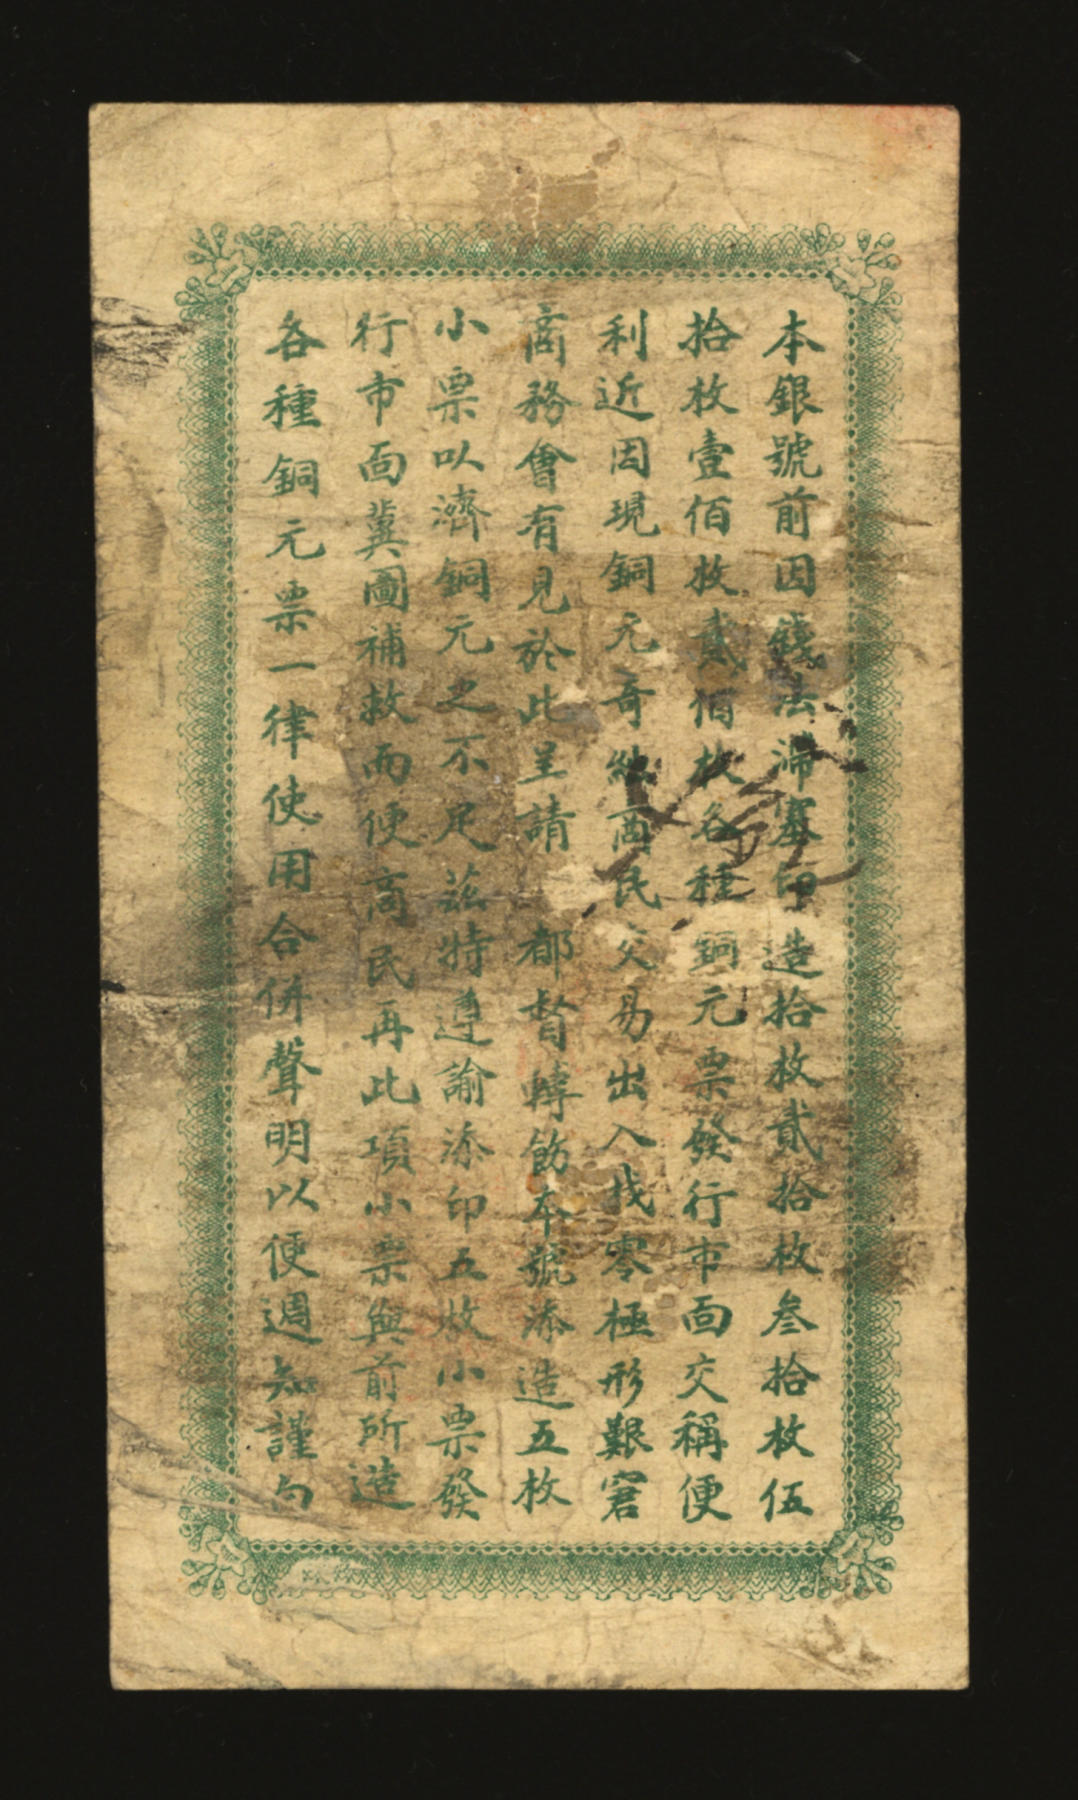 本銀號前因錢法滯塞印造拾枚貳拾枚叁拾枚伍
拾枚壹佰枚貳佰枚各種銅元票發行市面交稱便
利近因現銅元奇絀商民交易出入找零極形艱窘
商務會有見於此呈請都督轉飭本號添造五枚
小票以濟銅元之不足茲特遵諭添印五枚小票發
行市面冀圖補救而便商民再此項小票與前所造
各種銅元票一律使用合併聲明以便週知謹白